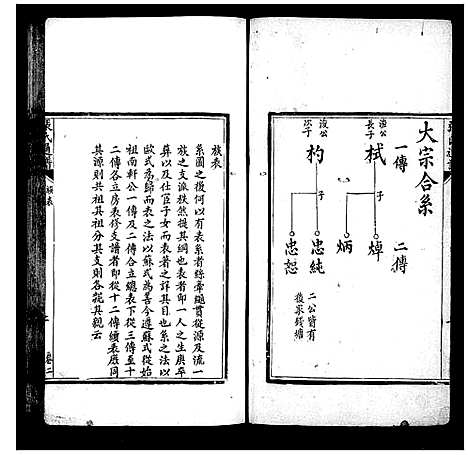 大宗合系
一傳 二傳
浚公長子
栻
子
焯
炳
浚公次子
杓
子
忠純
忠恕
二公皆有後家錢塘
族表
系圖之後何以有表系者絲牽繩貫從源及流一
族之支派秩然提其綱也表者即一人之生庚卒
葬以及仕宦子女而表著之詳其目也系之法以
歐式為歸而表之法以蘇式為善今遵蘇式從始
祖南軒公一傳及二傳合立總表下從三傳至十
二傳各立房表修支譜者即從十二傳續表庶同
其源則共祖其祖分其支則各親其親云
張氏通譜
族表
卷二